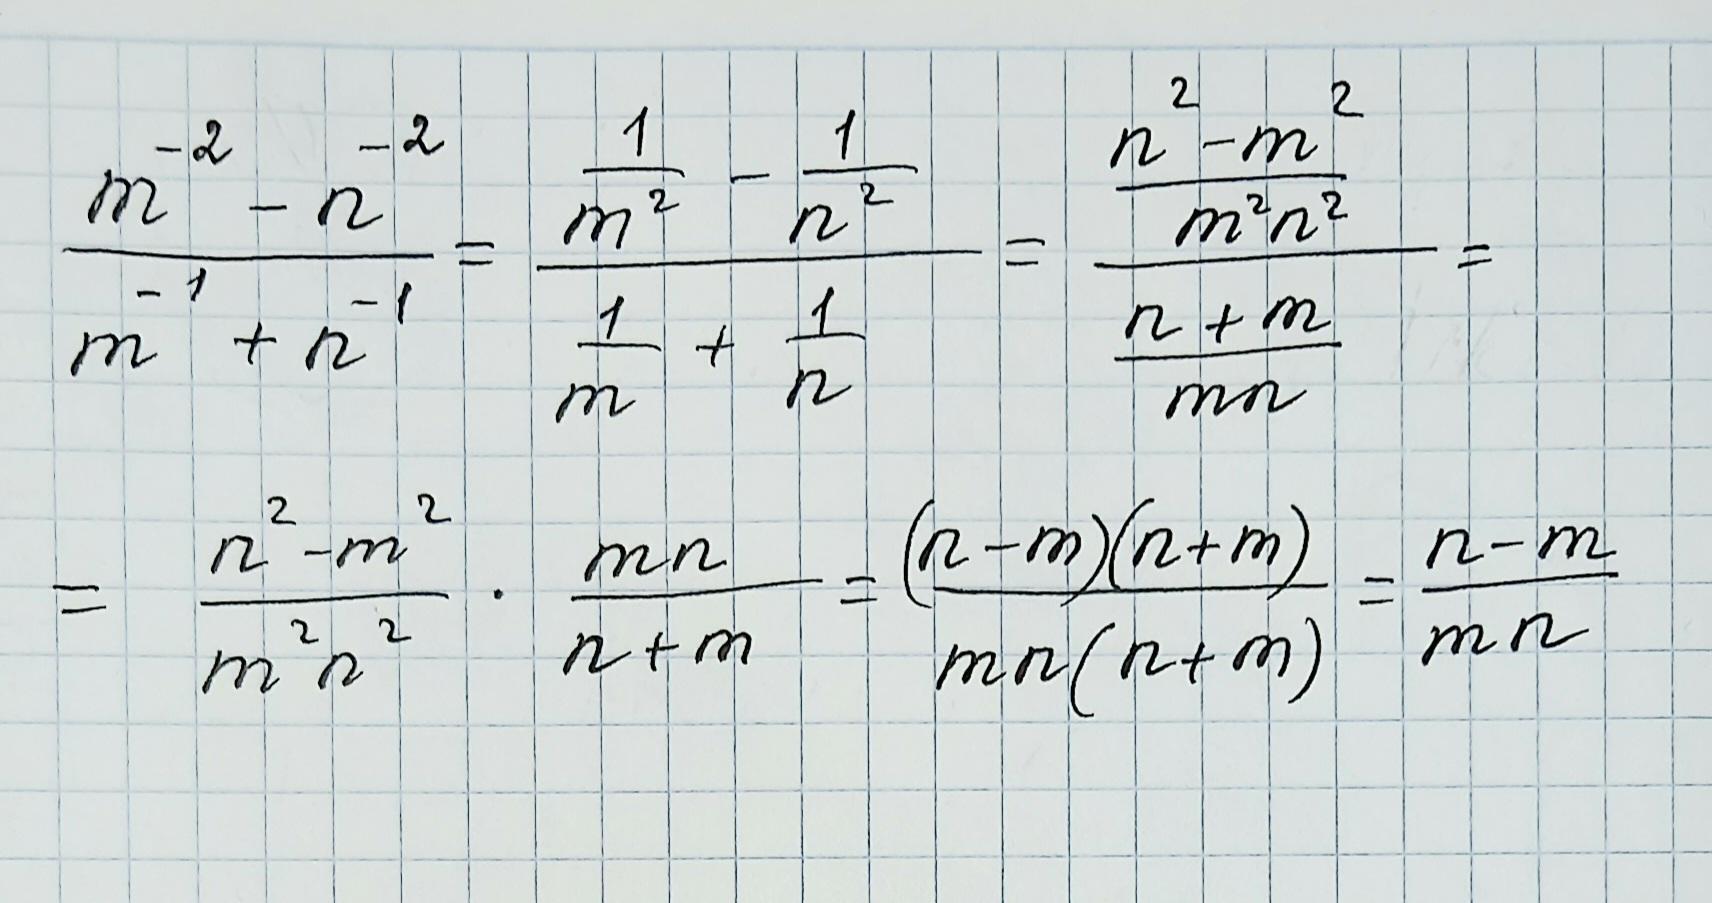 \frac{m^{-2} - n^{-2}}{m^{-1} + n^{-1}} = \frac{\frac{1}{m^2} - \frac{1}{n^2}}{\frac{1}{m} + \frac{1}{n}} = \frac{\frac{n^2 - m^2}{m^2 n^2}}{\frac{n + m}{mn}} =
= \frac{n^2 - m^2}{m^2 n^2} \cdot \frac{mn}{n + m} = \frac{(n - m)(n + m)}{mn(n + m)} = \frac{n - m}{mn}